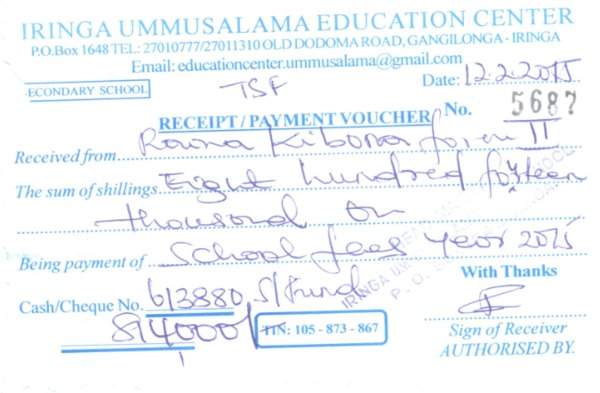 IRINGA UMMUSALAMA EDUCATION CENTER
P.O.Box 1648 TEL: 27010777/27011310 OLD DODOMA ROAD, GANGILONGA - IRINGA
Email: educationcenter.ummusalama@gmail.com
ECONDARY SCHOOL TSF Date: 12.2.2015
RECEIPT / PAYMENT VOUCHER No. 5687
Received from Rauna Kibona form II
The sum of shillings Eight hundred fourteen
thousand on
Being payment of School fees year 2015
With Thanks
Cash/Cheque No. 613880 S/Fund
814000/ TIN: 105 - 873 - 867
Sign of Receiver
AUTHORISED BY.